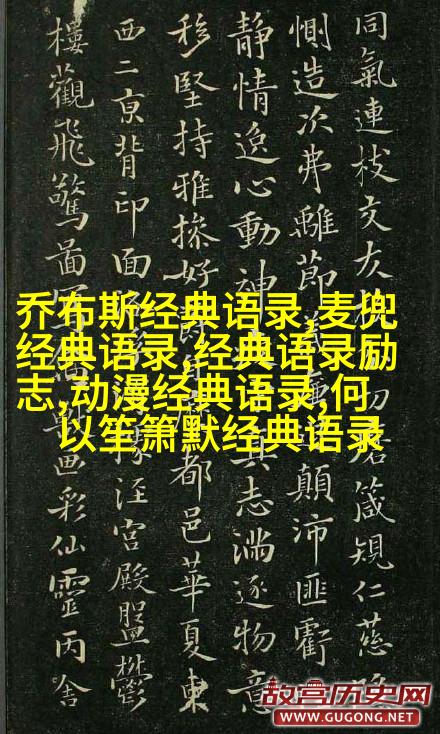 同氣連枝交友切磨箴規仁慈隱
惻造次弗離節義顛沛匪虧
靜情逸心動神真志滿逐物意
移堅持雅操好爵都邑華夏東
西二京背邙面據涇宮殿盤鬱
樓觀飛驚圖寫獸畫彩仙靈丙舍
乔布斯经典语录,麦兜
经典语录,经典语录励
志,动漫经典语录,何
以笙箫默经典语录
故宫历史网
WWW.GUGONG.NET